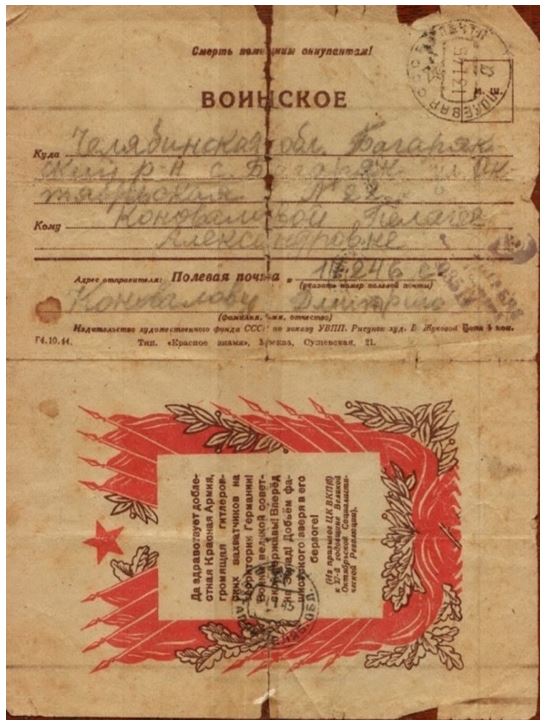 Смерть немецким оккупантам!
ВОИНСКОЕ
Куда Челябинская обл. Багаряк-
ский р-н с. Багаряк ул. Ок-
тябрьская № 22
Кому Коноваловой Пелагее
Александровне
Адрес отправителя: Полевая почта №
(указать номер полевой почты)
Коновалову Дмитрию
(фамилия, имя, отчество)
Издательство художественного фонда СССР по заказу УВПП. Рисунок худ. В. Жуковой Цена 5 коп.
Г4.10.44. Тип. «Красное знамя», Москва, Сущевская, 21.
Да здравствует добле-
стная Красная Армия,
громящая гитлеров-
ских захватчиков на
территории Германии!
Воины великой совет-
ской державы! Вперёд
на Запад! Добьём фа-
шистского зверя в его
берлоге!
(Из призывов ЦК ВКП(б)
к 27-й годовщине Великой
Октябрьской Социалисти-
ческой Революции).